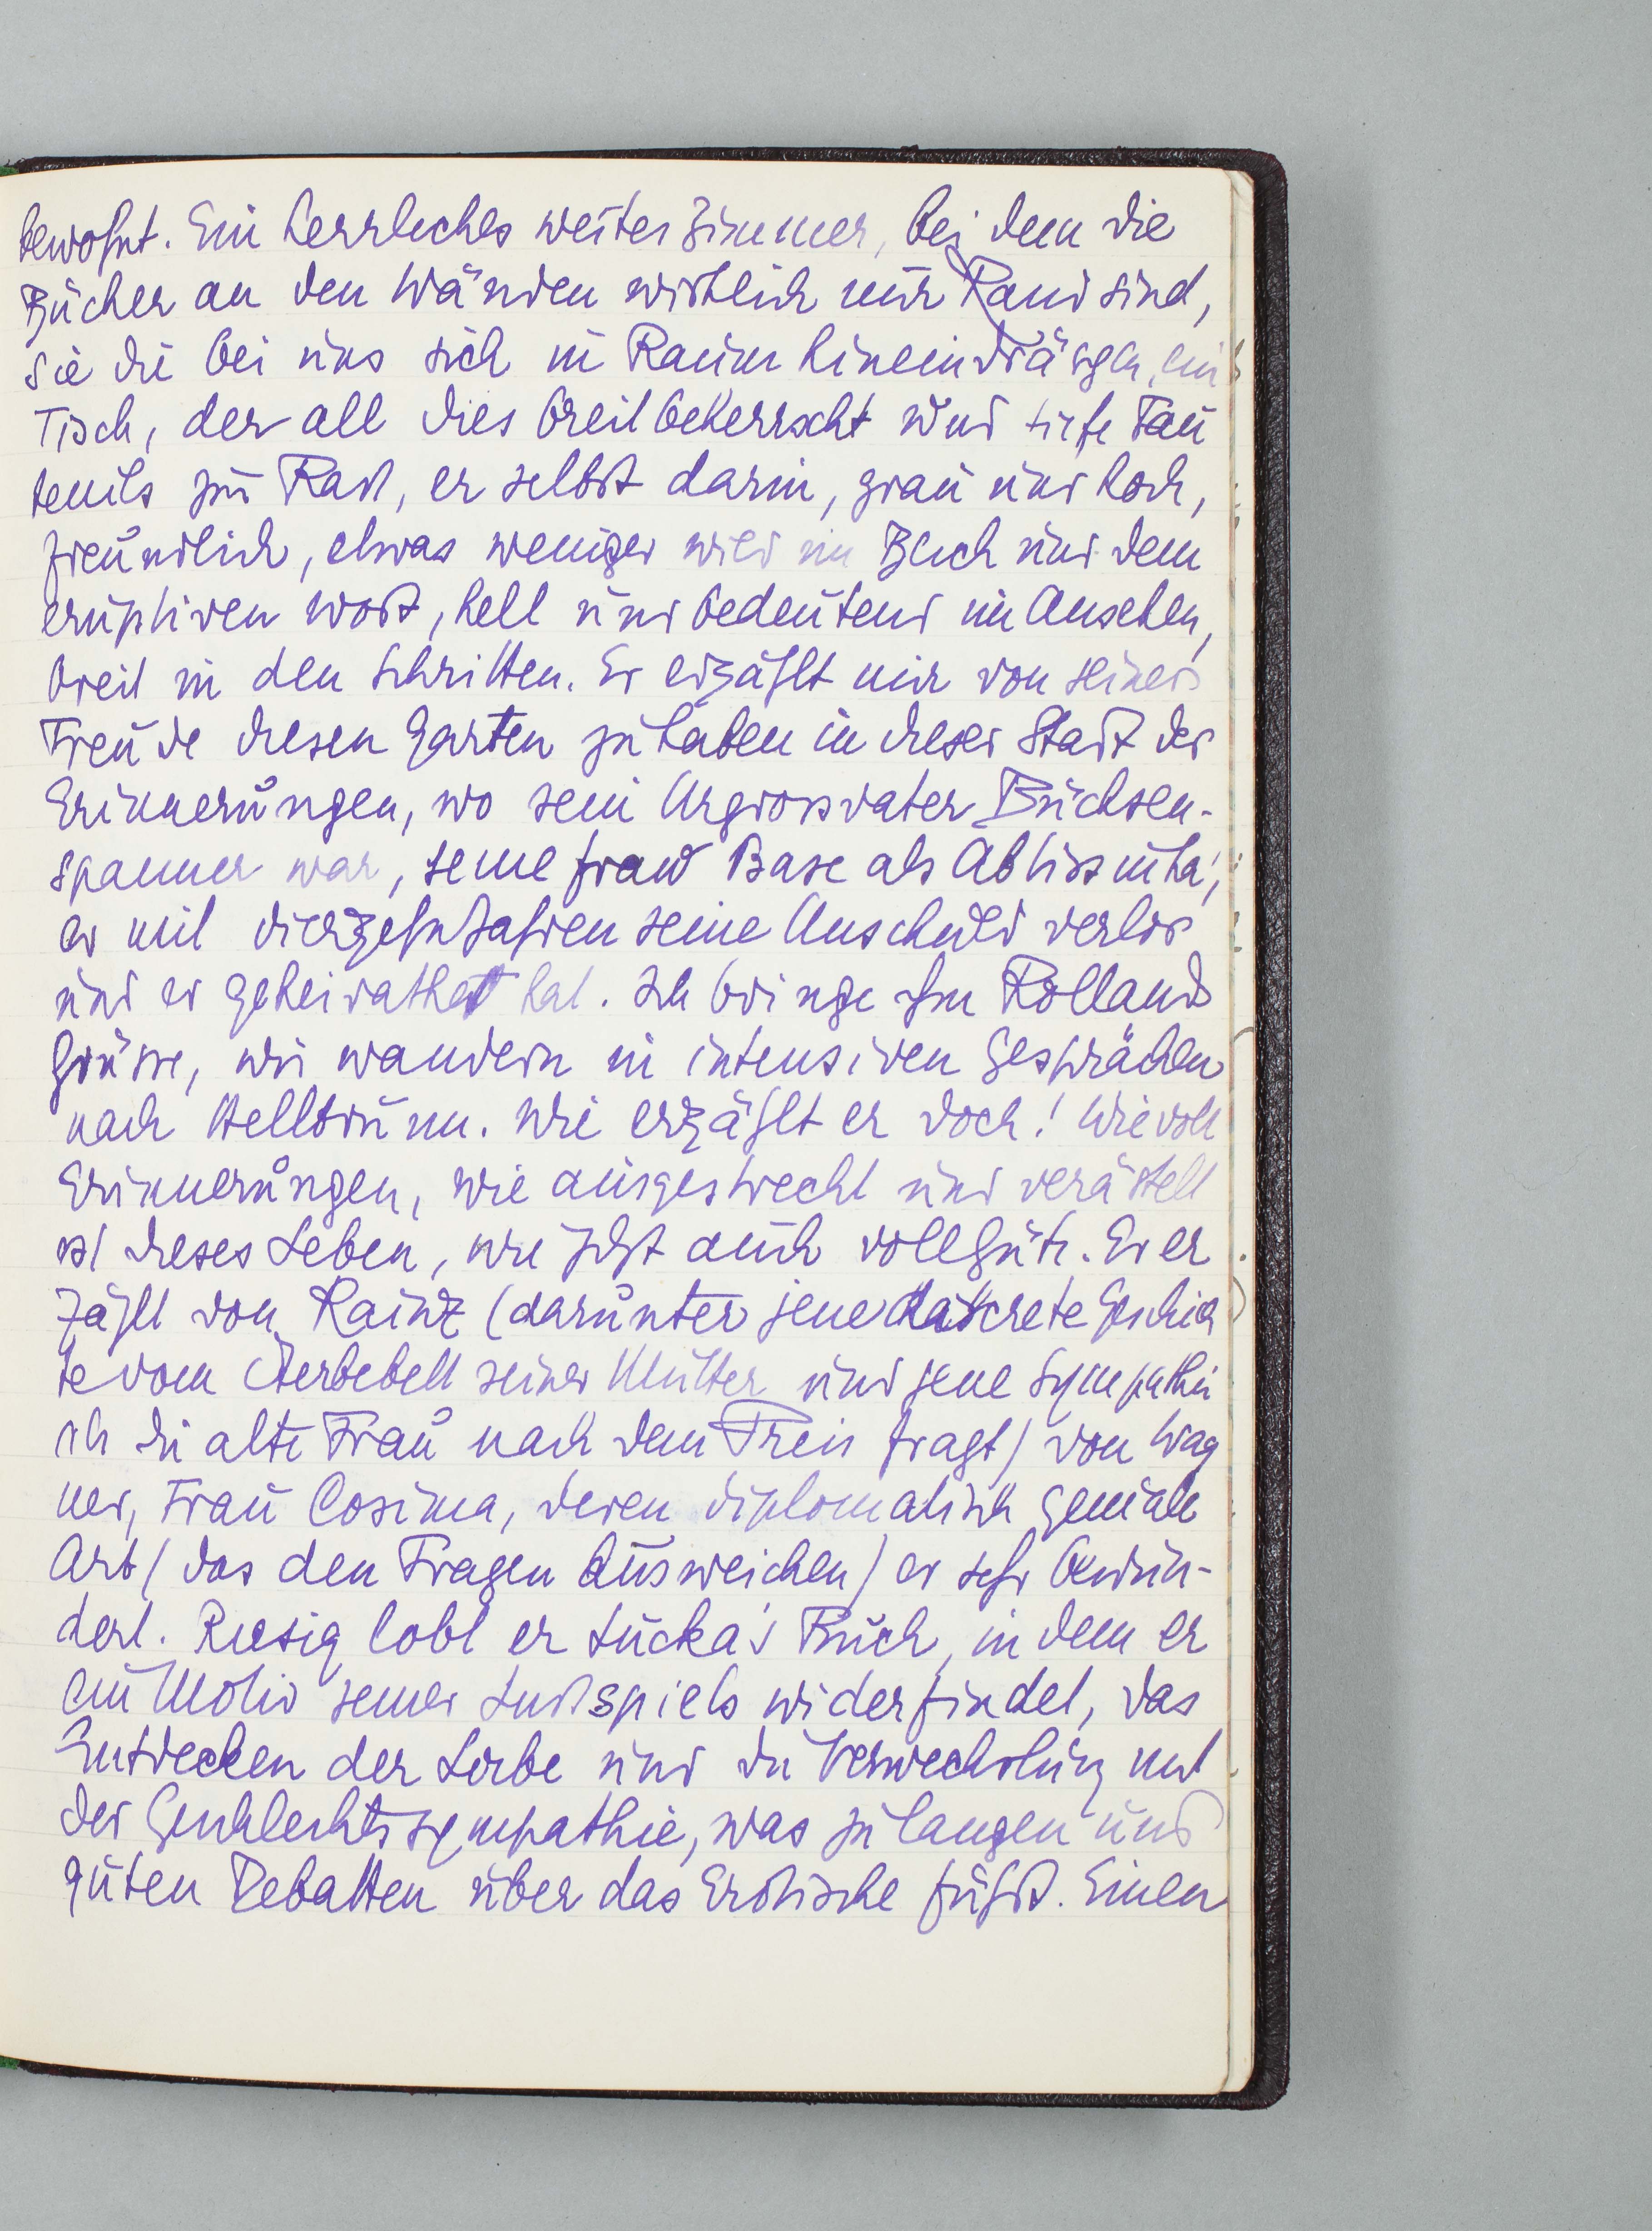 bewohnt. Ein herrliches weites Zimmer, bei dem die
Bücher an den Wänden wirklich nur Rand sind,
sie die bei uns sich in Raum hineindrängen, ein
Tisch, der all dies breit beherrscht und tiefe Fau
teuils zur Rast, er selbst darin, grau und hoch,
freundlich, etwas weniger wild im Blick und dem
eruptiven Wort, hell und bedeutend im Ansehen,
breit in den Schritten. Er erzählt mir von seiner
Freude diesen Garten zu haben in dieser Stadt der
Erinnerungen, wo sein Urgrossvater Büchsen-
spanner war, seine Frau Base als Äbtissin
er mit vierzehn Jahren seine Unschuld verlor
und er geheirathet hat. Ich bringe ihm Rollands
Grüsse, wir wandern in intensiven Gesprächen
nach Hellbrunn. Wie erzählt er doch! Wie voll
Erinnerungen, wie ausgestreckt und verästelt
ist dieses Leben, wie jetzt auch voll Güte. Er er
zählt von Kainz (darunter jene discrete Geschich
te vom Sterbebett seiner Mutter und jene
die alte Frau nach dem Preis fragt) von Wag
ner, Frau Cosima, deren diplomatisch geniale
Art (das den Fragen Ausweichen) er sehr bewun-
dert. Riesig lobt er Lucka's Buch, in dem er
ein Motiv seines Lustspiels widerfindet, das
Entdecken der Liebe und die Verwechslung mit
der Geschlechtssympathie, was zu langen und
guten Debatten über das Erotische führt. Einen